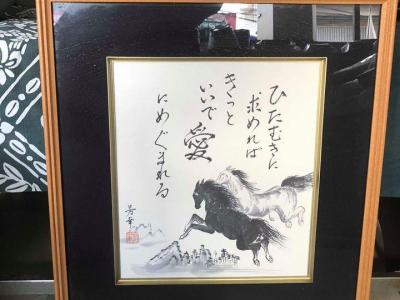 ひたむきに
求めれば
きっと
いいで愛
にめぐまれる
芳幸